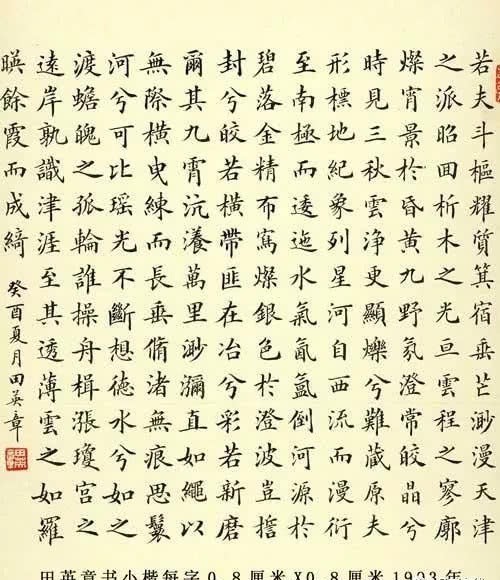 若夫斗樞耀質箕宿垂芒渺漫天津
之派昭囬析木之光亘雲程之寥廓
燦宵景於昏黃九野氛澄常皎晶兮
時見三秋雲淨更顯爍兮難藏原夫
形標地紀象列星河自西流而漫衍
至南極而逶迤水氣氤氳倒河源於
碧落金精布寫燦銀色於澄波豈擔
封兮皎若橫帶匪在冶兮彩若新磨
爾其九霄沆瀁萬里渺瀰直如繩以
無際橫曳練而長垂脩渚無痕思鬟
河兮可比瑶光不斷想德水兮如之
渡蟾魄之孤輪誰操舟楫漲瓊宮之
遠岸孰識津涯至其透薄雲之如羅
暎餘霞而成綺
癸酉夏月田英章
田英章书小楷每字0.8厘米X0.8厘米1993年